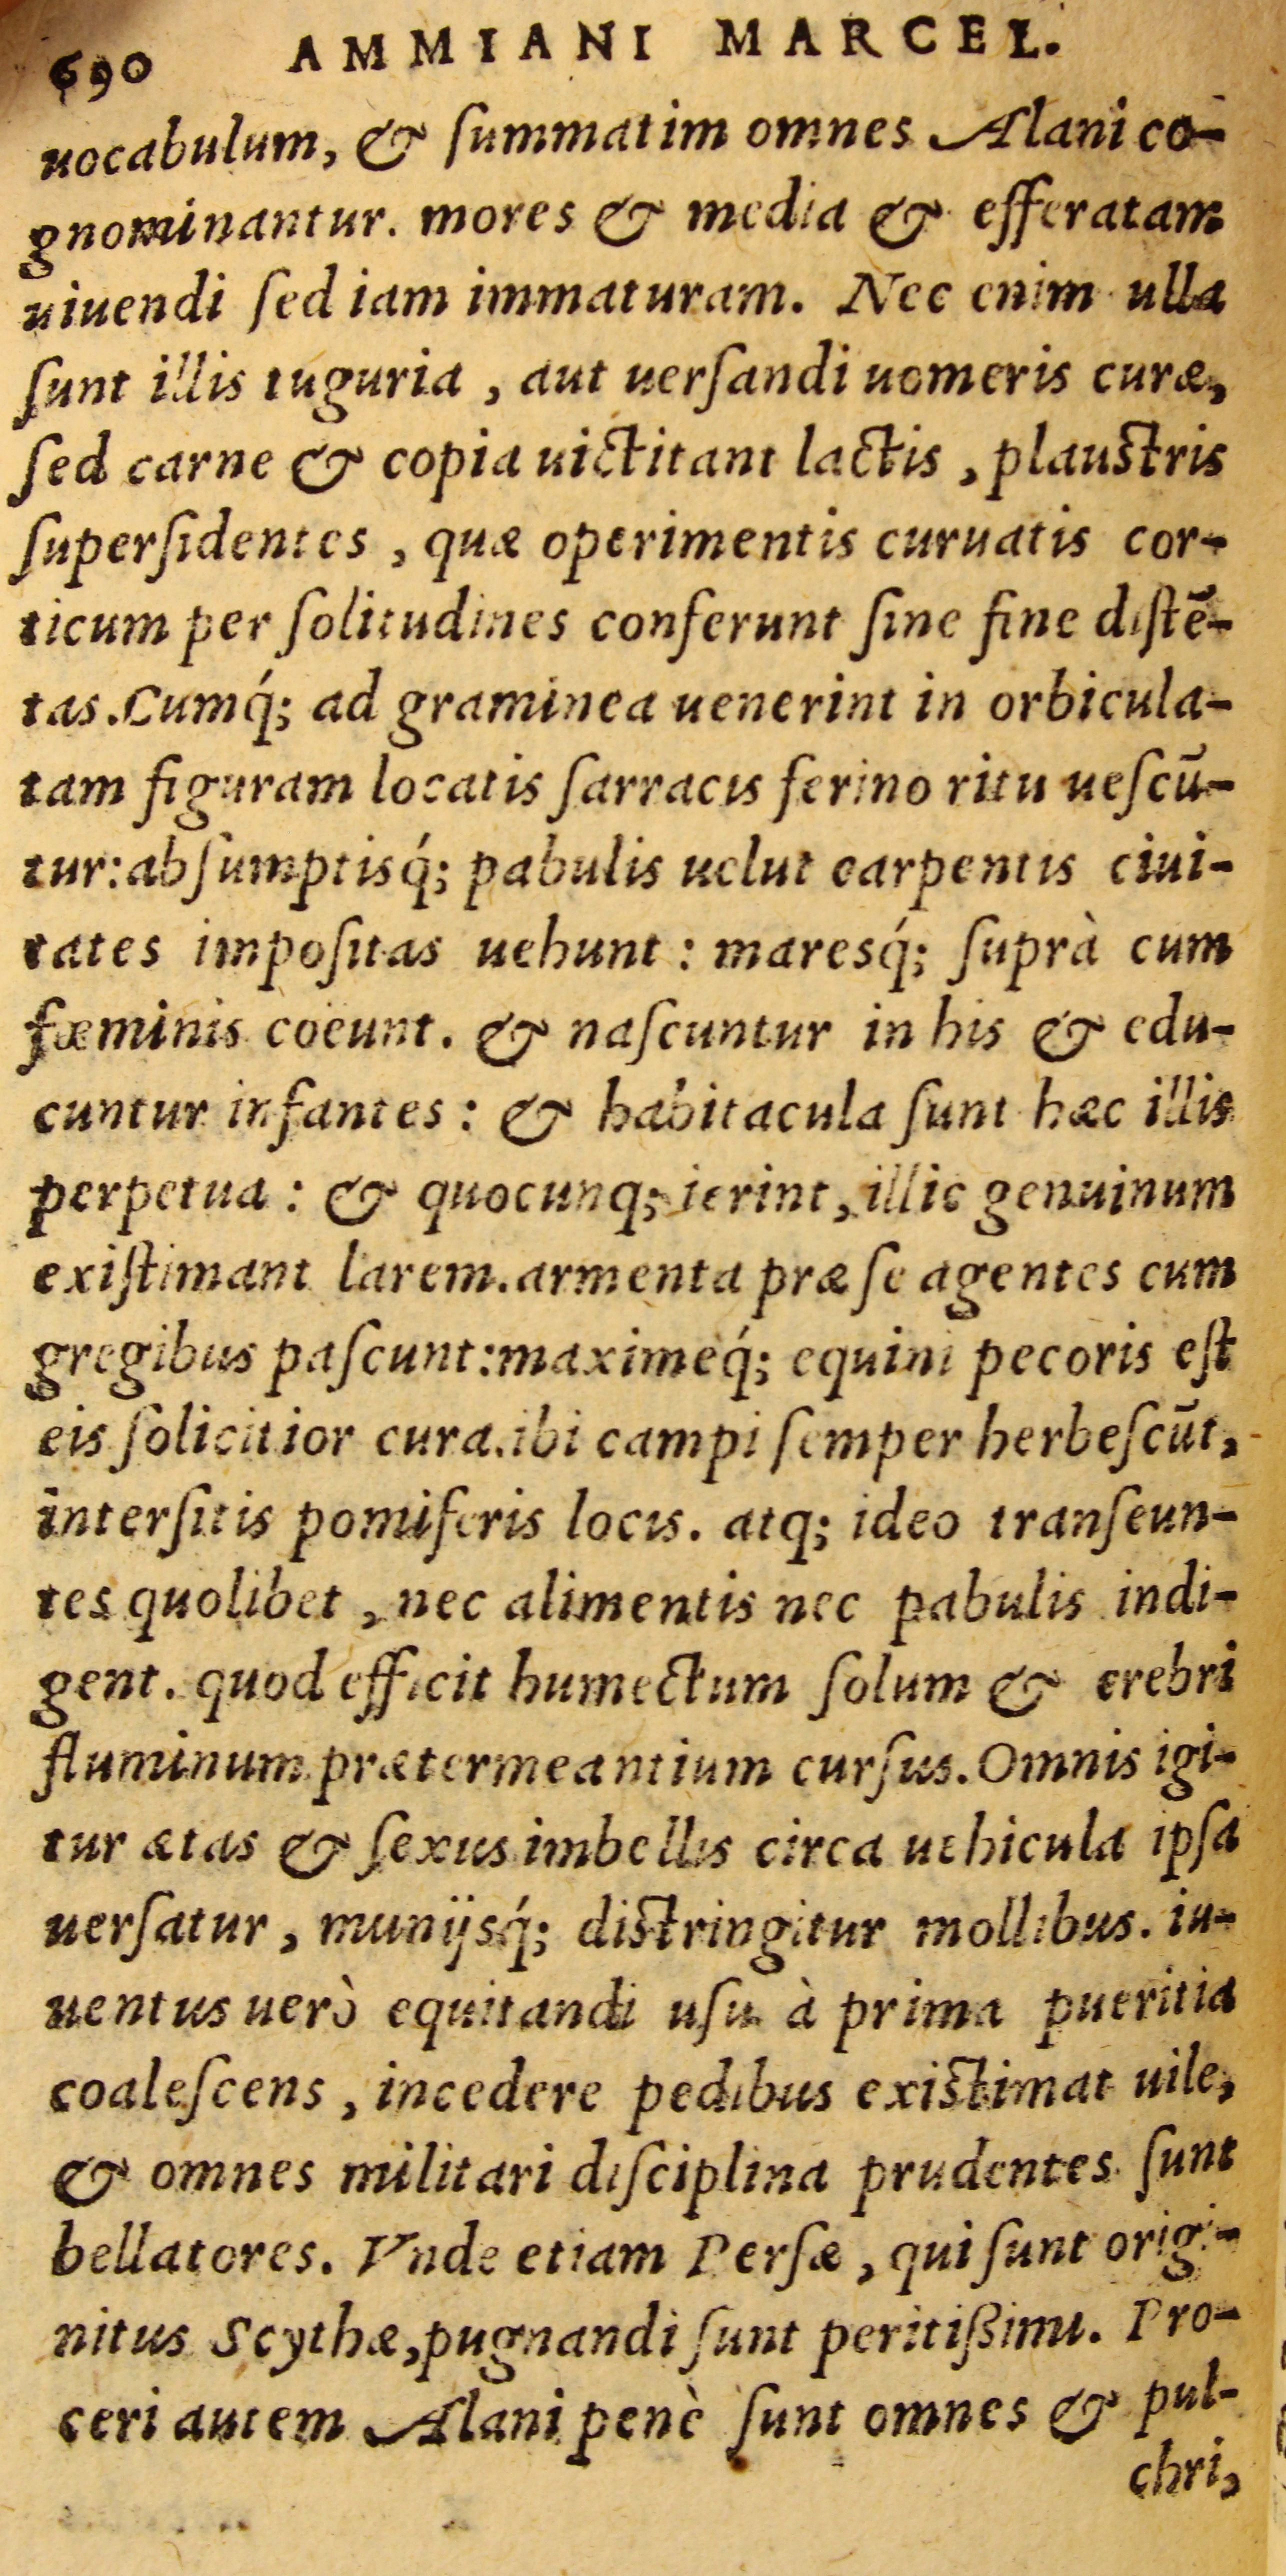 690 AMMIANI MARCEL.
uocabulum, & ſummatim omnes Alani co-
gnominantur. mores & media & efferatam
uiuendi ſed iam immaturam. Nec enim ulla
ſunt illis tuguria, aut uerſandi uomeris curæ,
ſed carne & copia uictitant lactis, plauſtris
ſuperſidentes, quæ operimentis curuatis cor-
ticum per ſolitudines conferunt ſine fine diſtē-
tas. Cumq́; ad graminea uenerint in orbicula-
tam figuram locatis ſarracis ferino ritu ueſcū-
tur: abſumptisq́; pabulis uelut carpentis ciui-
tates impoſitas uehunt: maresq́; ſuprà cum
fæminis coeunt. & naſcuntur in his & edu-
cuntur infantes: & habitacula ſunt hæc illis
perpetua: & quocunq; ierint, illic genuinum
exiſtimant larem. armenta præ ſe agentes cum
gregibus paſcunt: maximeq́; equini pecoris eſt
eis ſolicitior cura. ibi campi ſemper herbeſcūt,
interſitis pomiferis locis. atq; ideo tranſeun-
tes quolibet, nec alimentis nec pabulis indi-
gent. quod efficit humectum ſolum & crebri
fluminum prætermeantium curſus. Omnis igi-
tur ætas & ſexus imbellis circa uehicula ipſa
uerſatur, munijsq́; diſtringitur mollibus. iu-
uentus uerò equitandi uſu à prima pueritia
coaleſcens, incedere pedibus exiſtimat uile,
& omnes militari diſciplina prudentes ſunt
bellatores. Vnde etiam Perſæ, qui ſunt origi-
nitus Scythæ, pugnandi ſunt peritißimi. Pro-
ceri autem Alani penè ſunt omnes & pul-
chri,